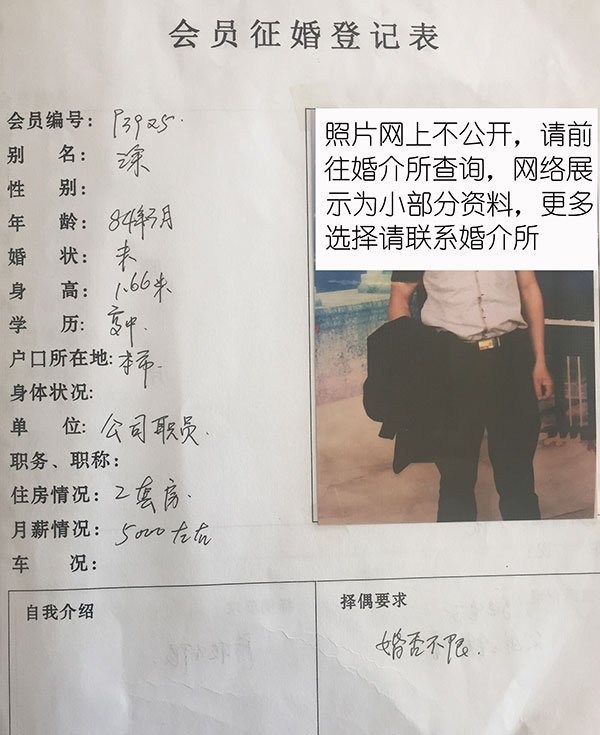 会员征婚登记表
会员编号：P3925.
别 名：涂
性 别：
年 龄：84年3月
婚 状：未
身 高：1.66米
学 历：高中.
户口所在地：本市.
身体状况：
单 位：公司职员.
职务、职称：
住房情况：2套房.
月薪情况：5000左右
车 况：
照片网上不公开，请前
往婚介所查询，网络展
示为小部分资料，更多
选择请联系婚介所
自我介绍
择偶要求
婚否不限.